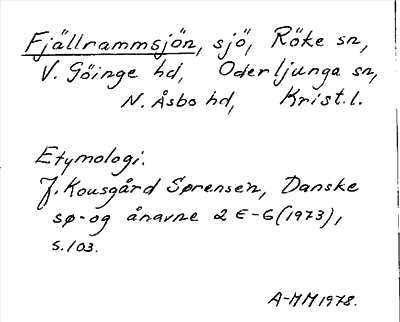 Fjällrammsjön, sjö, Röke sn,
V. Göinge hd, Oderljunga sn,
N. Åsbo hd, Krist. l.
Etymologi.
J. Kousgård Sørensen, Danske
sø- og ånavne 2 E-G (1973),
s. 103.
A-MM 1978.